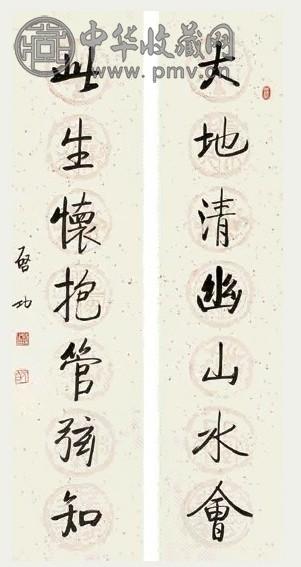 中华收藏网
www.pmv.cn
大地清幽山水會
此生懷抱管弦知
啓功